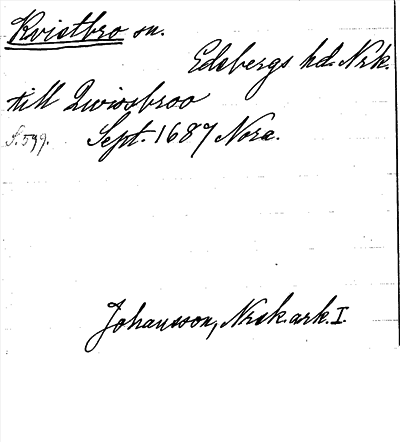 Kvistbro sn.
Edsbergs hd. Nrk.
till Qwissbroo
S. 599. Sept. 1687 Nora.
Johansson, Nrsk. ark. I.